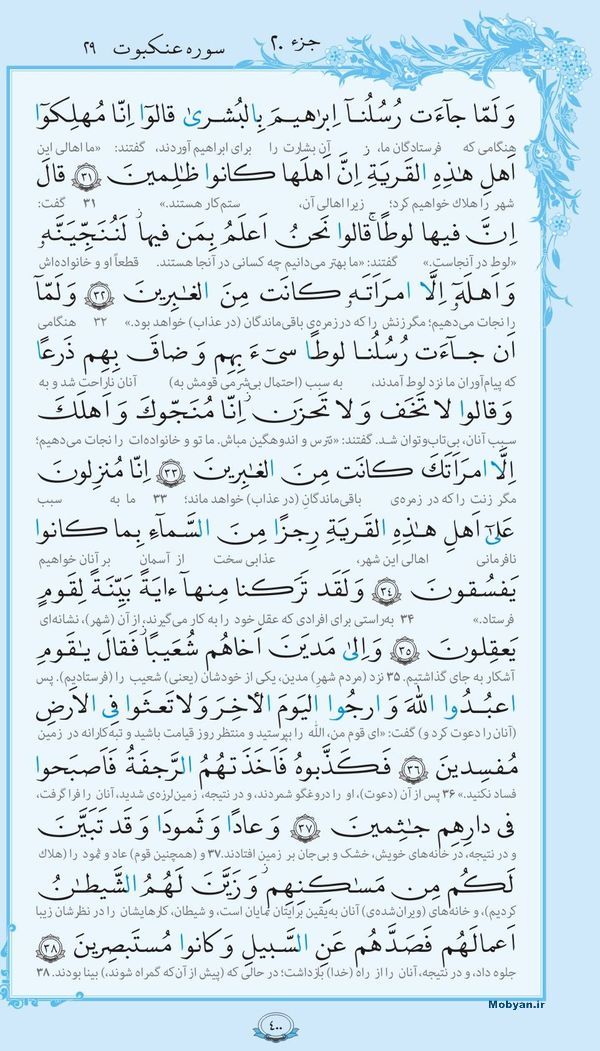 جزء ۲۰
سوره عنکبوت ۲۹
وَ لَمّا جآءَت رُسُلُنآ اِبراهیمَ بِالبُشریٰ قالوٓا اِنّا مُهلِکوٓا
هنگامی که فرستادگان ما، آن بشارت را برای ابراهیم آوردند، گفتند: «ما اهالی این
اَهلِ هٰذِهِ القَریَةِ اِنَّ اَهلَها کانوا ظٰلِمینَ ﴿۳۱﴾ قالَ
شهر را هلاک خواهیم کرد؛ زیرا اهالی آن، ستم‌کار هستند.» ۳۱ گفت:
اِنَّ فیها لوطًا ۚ قالوا نَحنُ اَعلَمُ بِمَن فیها ۖ لَنُنَجِّیَنَّهٗ
«لوط در آنجاست.» گفتند: «ما بهتر می‌دانیم چه کسانی در آنجا هستند. قطعاً او و خانواده‌اش
وَ اَهلَهٗٓ اِلَّا امرَاَتَهٗ کانَت مِنَ الغٰبِرینَ ﴿۳۲﴾ وَ لَمّآ
را نجات می‌دهیم؛ مگر زنش را که در زمره‌ی باقی‌ماندگان (در عذاب) خواهد بود.» ۳۲ هنگامی
اَن جآءَت رُسُلُنا لوطًا سیٓءَ بِهِم وَ ضاقَ بِهِم ذَرعًا
که پیام‌آوران ما نزد لوط آمدند، به سبب (احتمال بی‌شرمی قومش به) آنان ناراحت شد و به
وَ قالوا لا تَخَف وَ لا تَحزَن ۖ اِنّا مُنَجّوکَ وَ اَهلَکَ
سبب آنان، بی‌تاب‌وتوان شد. گفتند: «نترس و اندوهگین مباش. ما تو و خانواده‌ات را نجات می‌دهیم؛
اِلَّا امرَاَتَکَ کانَت مِنَ الغٰبِرینَ ﴿۳۳﴾ اِنّا مُنزِلونَ
مگر زنت را که در زمره‌ی باقی‌ماندگان (در عذاب) خواهد ماند؛ ۳۳ ما به سبب
عَلیٰٓ اَهلِ هٰذِهِ القَریَةِ رِجزًا مِنَ السَّمآءِ بِما کانوا
نافرمانی اهالی این شهر، عذابی سخت از آسمان بر آنان خواهیم
یَفسُقونَ ﴿۳۴﴾ وَ لَقَد تَرَکنا مِنهآ ءایَةً بَیِّنَةً لِقَومٍ
فرستاد.» ۳۴ به‌راستی برای افرادی که عقل خود را به کار می‌گیرند، از آن (شهر)، نشانه‌ای
یَعقِلونَ ﴿۳۵﴾ وَ اِلیٰ مَدیَنَ اَخاهُم شُعَیبًا ۖ فَقالَ یٰقَومِ
آشکار به جای گذاشتیم. ۳۵ نزد (مردم شهر) مدین، یکی از خودشان (یعنی) شعیب را (فرستادیم). پس
اعبُدُوا اللهَ وَ ارجُوا الیَومَ الأخِرَ وَ لا تَعثَوا فِی الاَرضِ
(آنان را دعوت کرد و) گفت: «ای قوم من، الله را بپرستید و منتظر روز قیامت باشید و تبه‌کارانه در زمین
مُفسِدینَ ﴿۳۶﴾ فَکَذَّبوهُ فَاَخَذَتهُمُ الرَّجفَةُ فَاَصبَحوا
فساد نکنید.» ۳۶ پس از آن (دعوت)، او را دروغگو شمردند، و در نتیجه، زمین‌لرزه‌ی شدید، آنان را فرا گرفت،
فی دارِهِم جٰثِمینَ ﴿۳۷﴾ وَ عادًا وَ ثَمودَا وَ قَد تَبَیَّنَ
و در نتیجه، در خانه‌های خویش، خشک و بی‌جان بر زمین افتادند. ۳۷ و (همچنین قوم) عاد و ثمود را (هلاک
لَکُم مِن مَسٰکِنِهِم ۖ وَ زَیَّنَ لَهُمُ الشَّیطٰنُ
کردیم)، و خانه‌های (ویران‌شده‌ی) آنان به‌یقین برایتان نمایان است، و شیطان، کارهایشان را در نظرشان زیبا
اَعمالَهُم فَصَدَّهُم عَنِ السَّبیلِ وَ کانوا مُستَبصِرینَ ﴿۳۸﴾
جلوه داد، و در نتیجه، آنان را از راه (خدا) بازداشت؛ در حالی که (پیش از آن‌که گمراه شوند،) بینا بودند. ۳۸
Mobyan.ir
۴۰۰